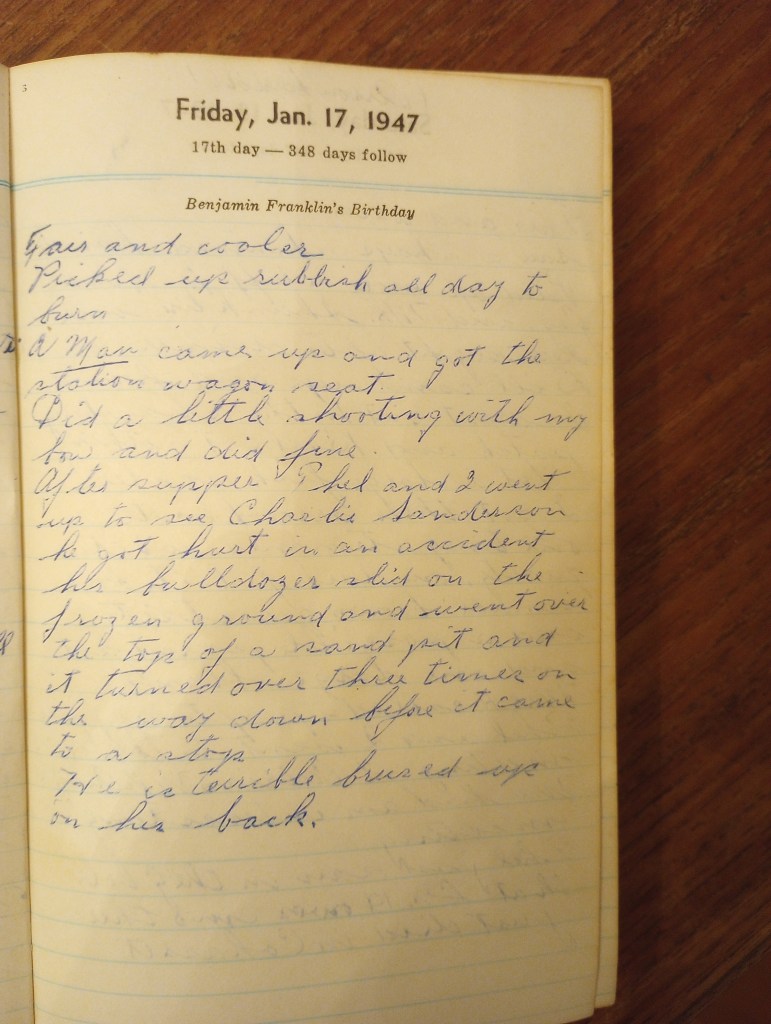 Friday, Jan. 17, 1947
17th day — 348 days follow
Benjamin Franklin's Birthday
Fair and cooler
Picked up rubbish all day to
burn
A Man came up and got the
station wagon seat.
Did a little shooting with my
bow and did fine.
After supper Phel and I went
up to see Charlie Sanderson
he got hurt in an accident
his bulldozer slid on the
frozen ground and went over
the top of a sand pit and
it turned over three times on
the way down before it came
to a stop
He is terrible brused up
on his back.